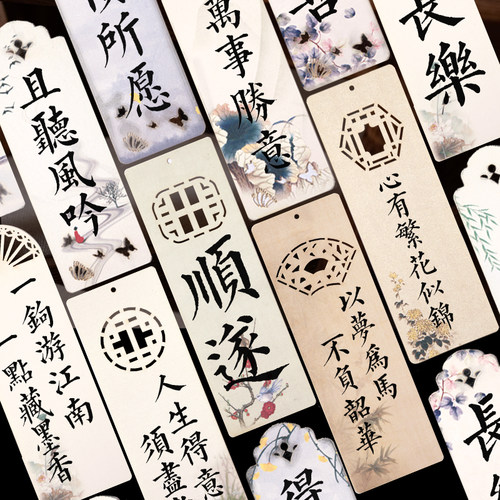 且聽風吟
所愿
萬事勝意
長樂
一鉤游江南
一點藏墨香
人生得意
須盡
順遂
以夢為馬
不負韶華
心有繁花似錦
得
長